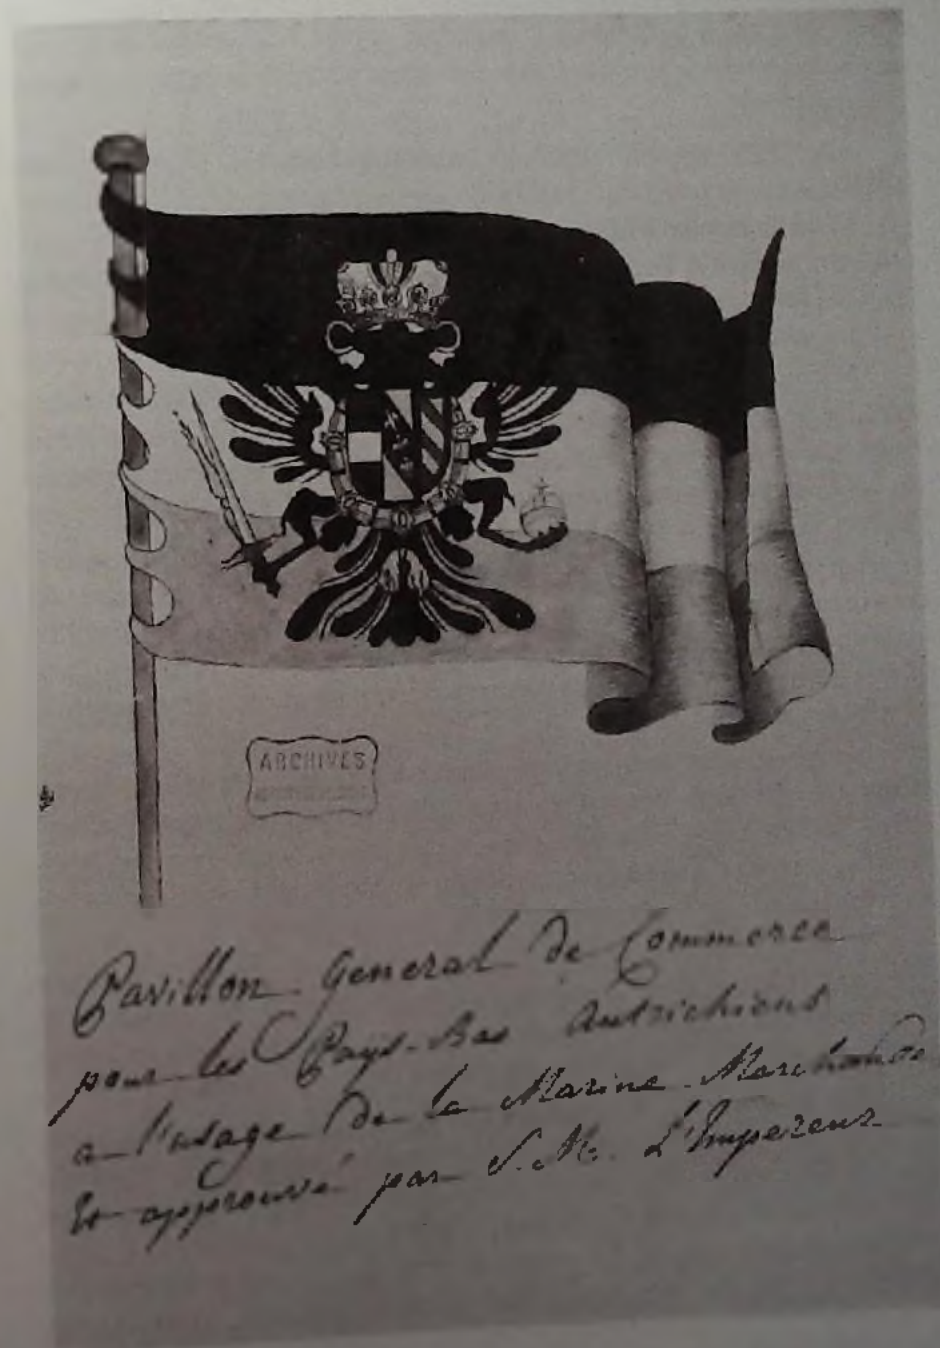 ARCHIVES
Pavillon General de Commerce
pour les Pays-Bas Autrichiens
a l'usage de la Marine Marchande
Et approuvé par S. M. L'Empereur